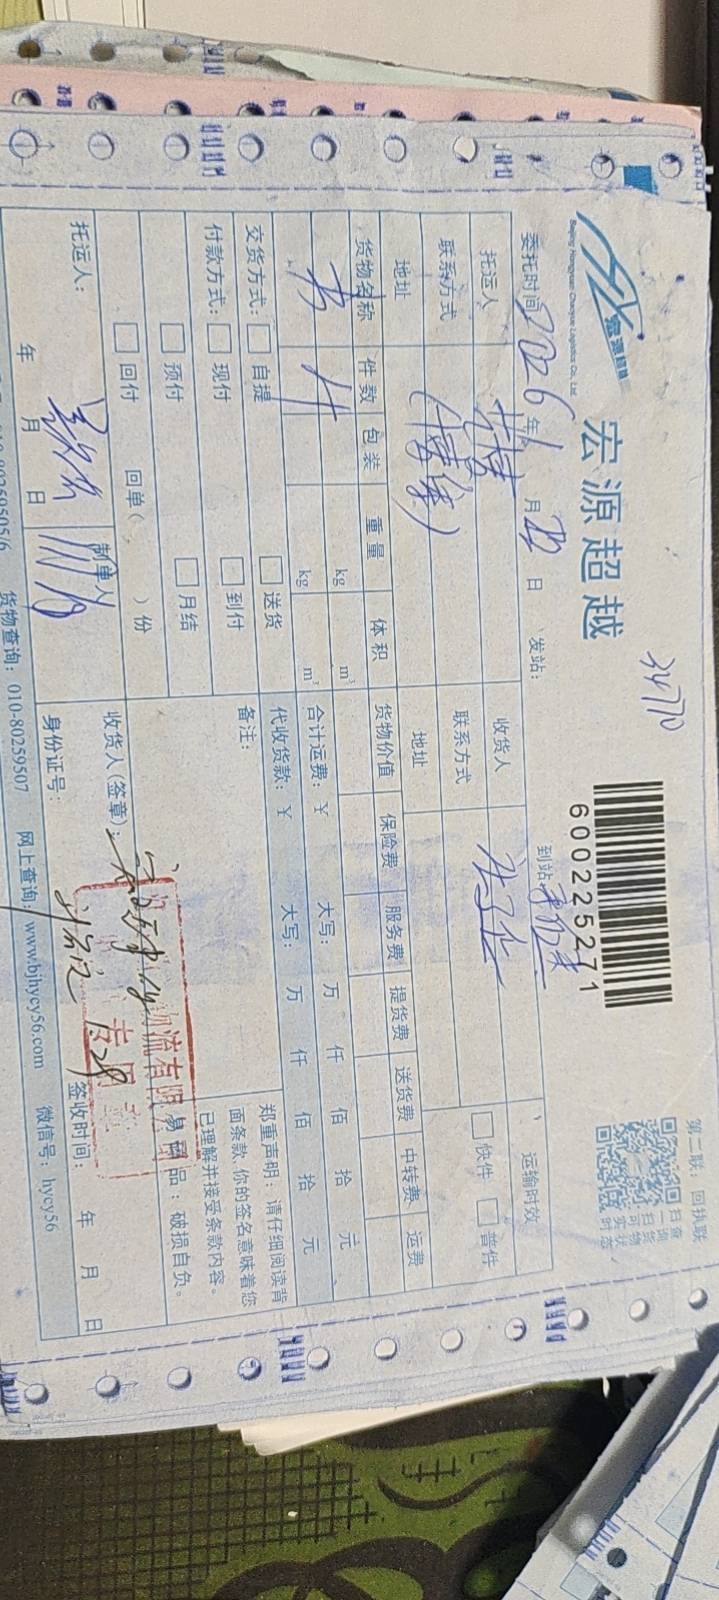 宏源超越
Beijing Hongyuan Chaoyue Logistics Co., Ltd.
34770
600225271
第二联：回执联
扫一扫可实时
查询货物状态
委托时间 2026 年 1 月 22 日 发站： 到站
托运人 博 收货人 运输时效
联系方式 联系方式 快件 普件
地址 地址
货物名称 件数 包装 重量 体积 货物价值 保险费 服务费 提货费 送货费 中转费 运费
书 kg m³ 合计运费：¥ 大写： 万 仟 佰 拾 元
kg m³ 代收货款：¥ 大写： 万 仟 佰 拾 元
交货方式： 自提 送货 备注： 郑重声明：请仔细阅读背
付款方式： 现付 到付 面条款,你的签名意味着您
预付 月结 已理解并接受条款内容。
回付 回单( )份 易碎品：破损自负。
物流有限
托运人： 制单人 收货人(签章)：
年 月 日 身份证号： 1.28 签收时间： 年 月 日
货物查询：010-80259507 网上查询：www.bjhycy56.com 微信号：hycy56